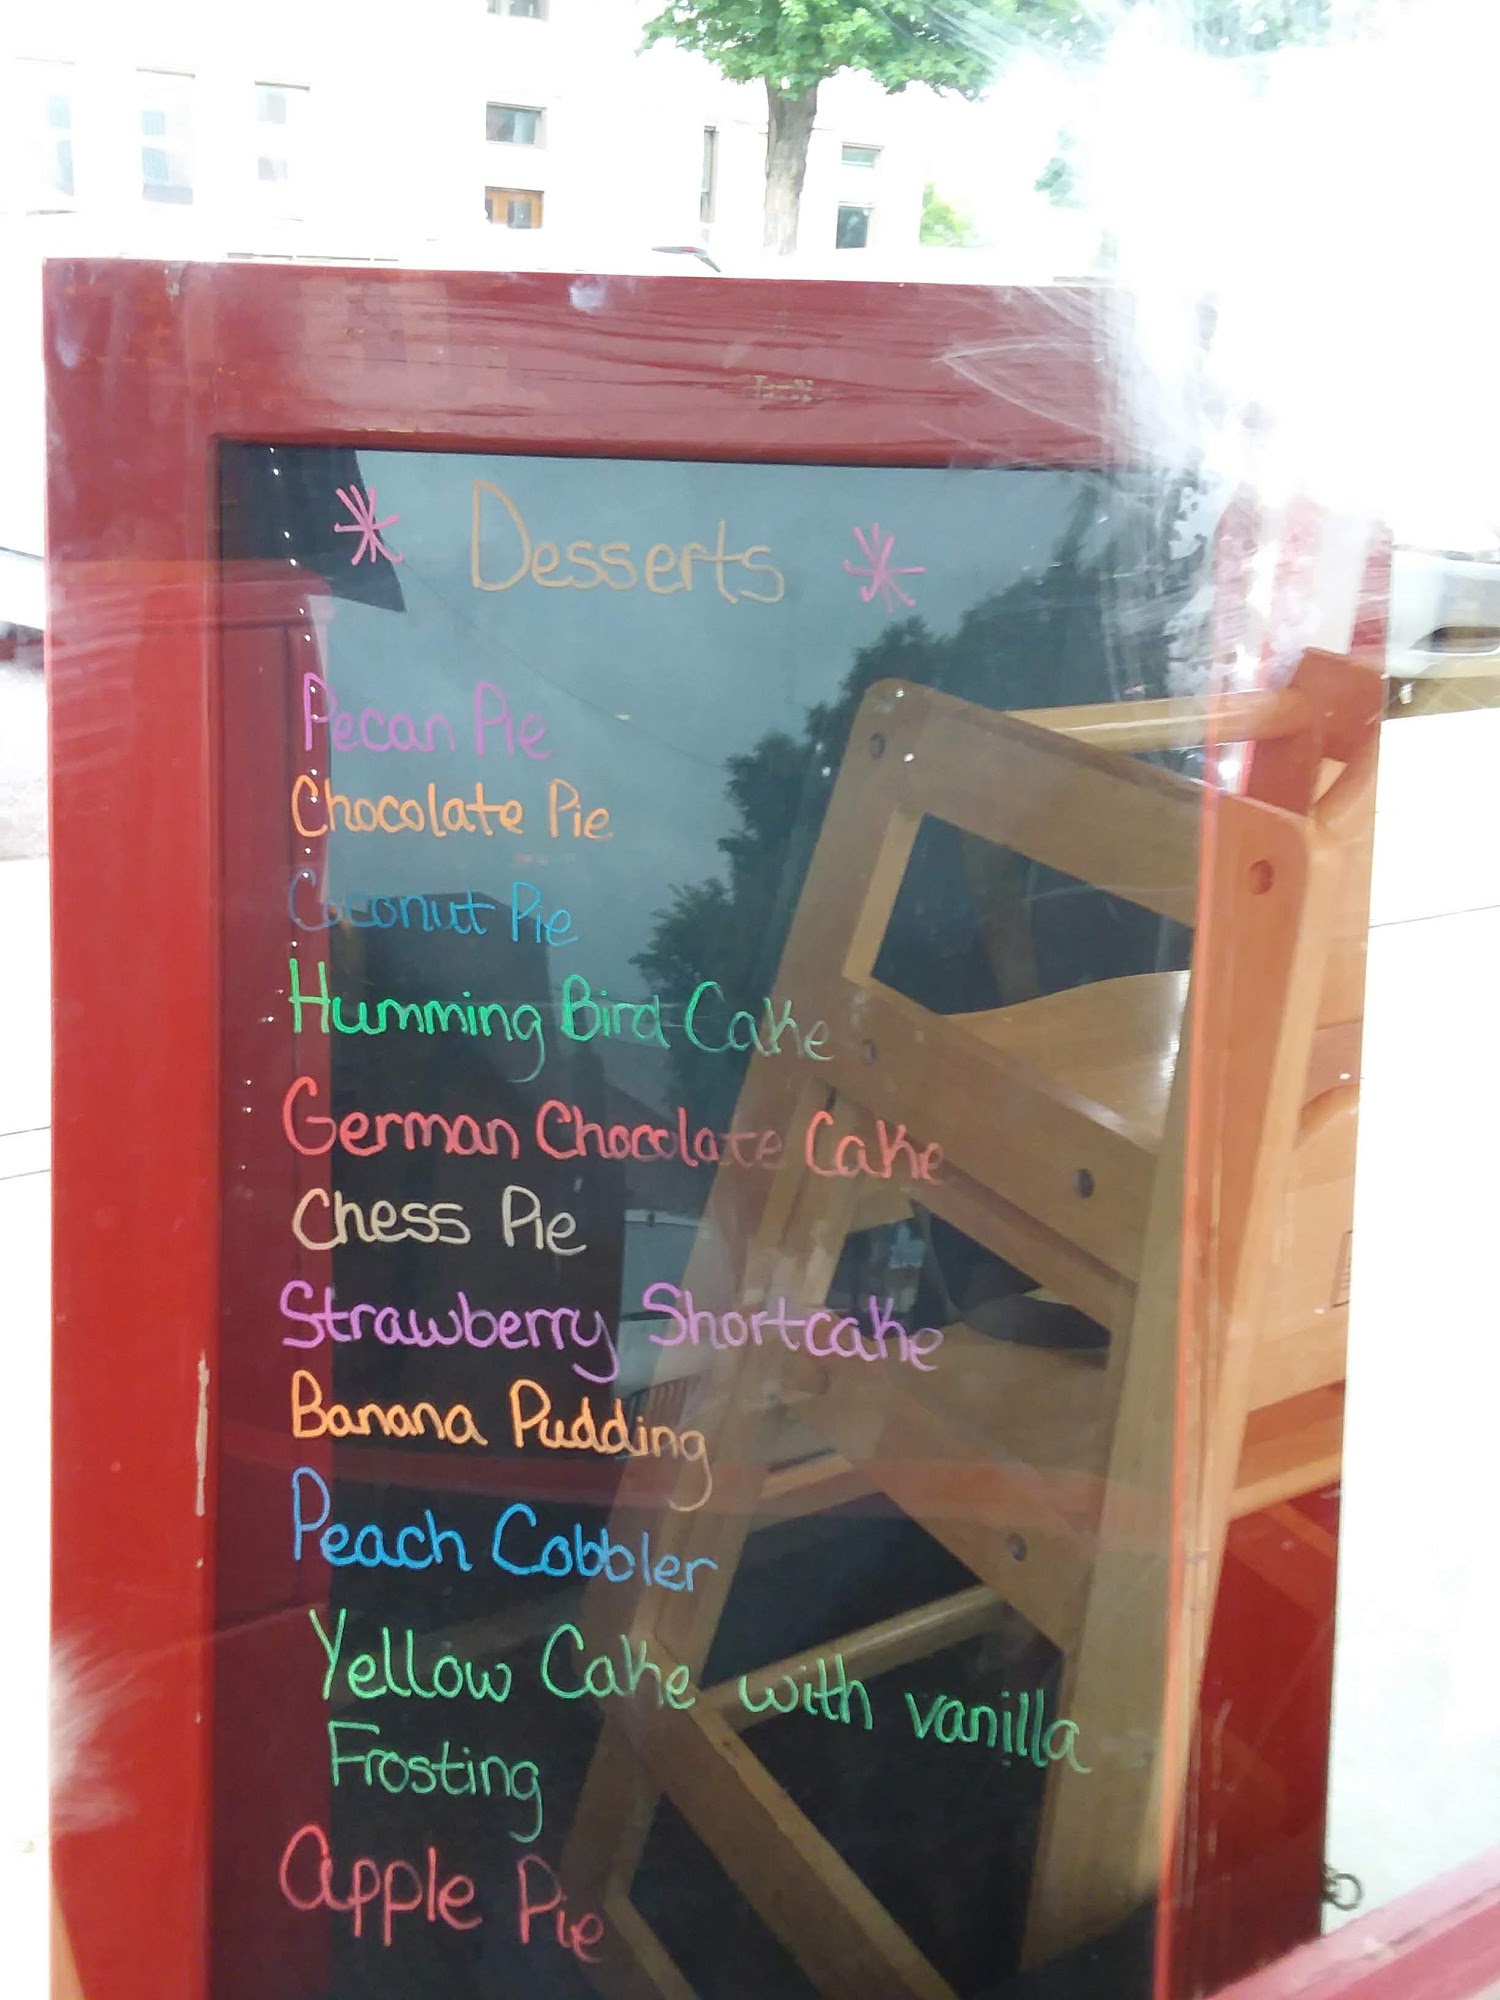 Desserts
Pecan Pie
Chocolate Pie
Coconut Pie
Humming Bird Cake
German Chocolate Cake
Chess Pie
Strawberry Shortcake
Banana Pudding
Peach Cobbler
Yellow Cake with vanilla
Frosting
apple Pie